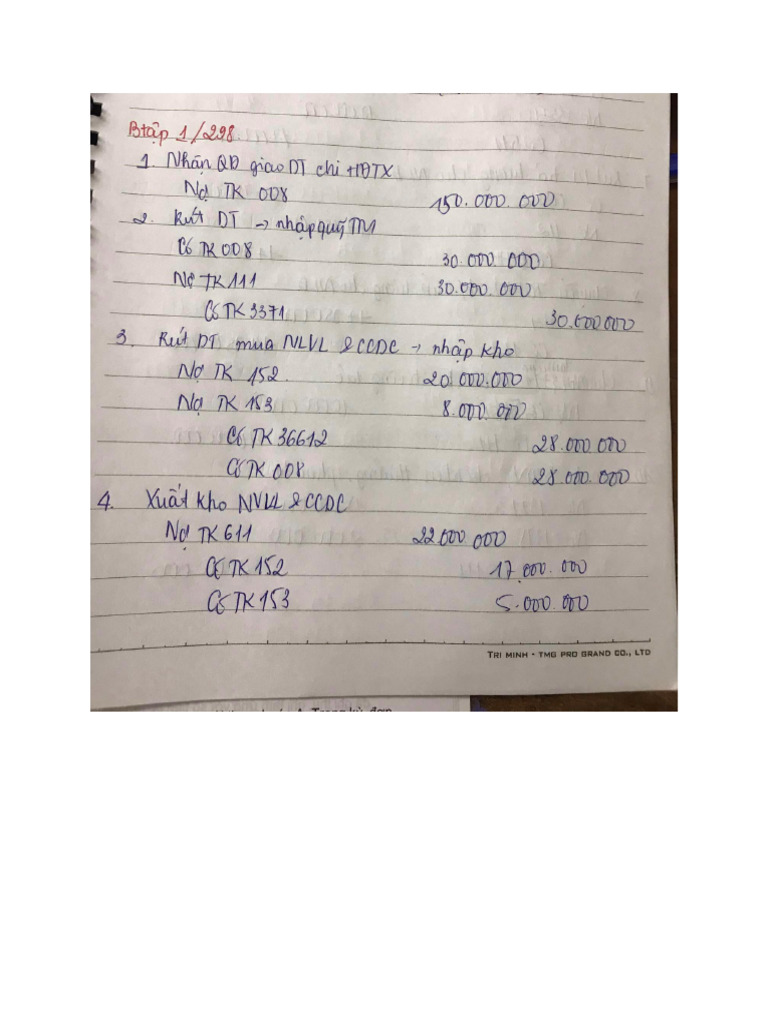 Btập 1/298.
1. Nhận QĐ giao DT chi HĐTX
Nợ TK 008 150.000.000
2. Rút DT → nhập quỹ TM
Có TK 008 30.000.000
Nợ TK 111 30.000.000
Có TK 3371 30.000.000
3. Rút DT mua NLVL & CCDC → nhập kho
Nợ TK 152. 20.000.000
Nợ TK 153 8.000.000
Có TK 36612 28.000.000
Có TK 008 28.000.000
4. Xuất kho NVLL & CCDC
Nợ TK 611 22.000.000
Có TK 152 17.000.000
Có TK 153 5.000.000
TRI MINH - TMG PRO GRAND CO., LTD